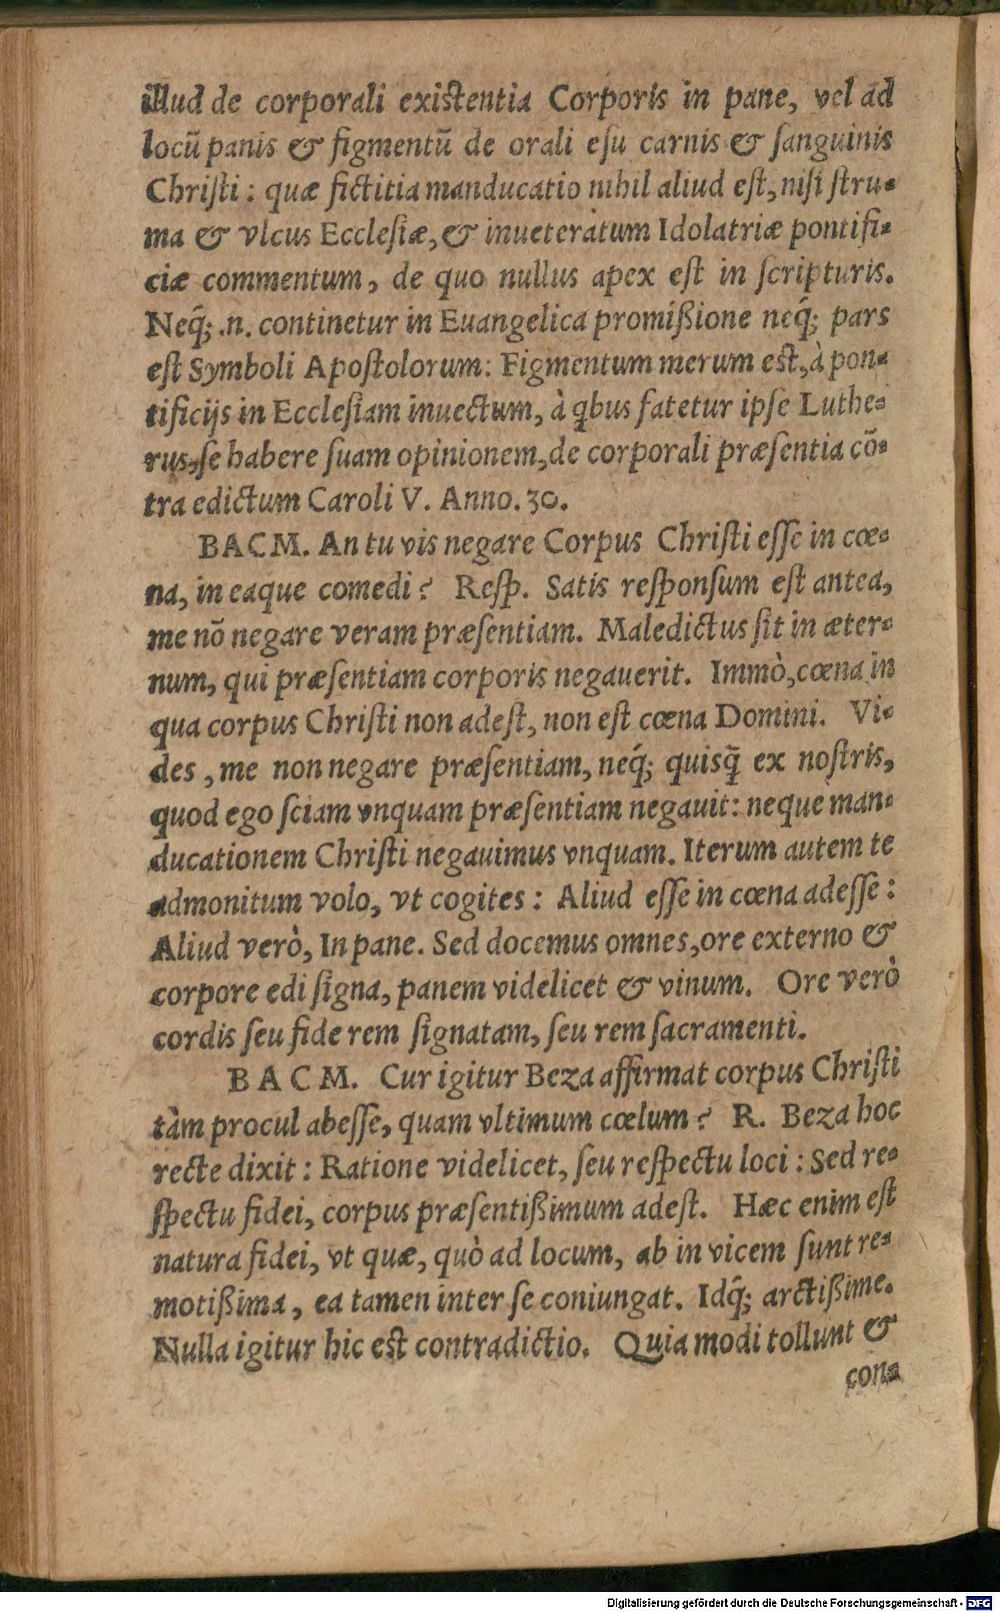 illud de corporali existentia Corporis in pane, vel ad
locũ panis & figmentũ de orali eſu carnis & ſanguinis
Chriſti: quæ fictitia manducatio nihil aliud eſt, niſi ſtru-
ma & vlcus Eccleſiæ, & inueteratum Idolatriæ pontifi-
ciæ commentum, de quo nullus apex eſt in ſcripturis.
Neq́; .n. continetur in Euangelica promißione neq́; pars
eſt Symboli Apoſtolorum: Figmentum merum est, à pon-
tificijs in Eccleſiam inuectum, à qbus fatetur ipſe Luthe-
rus, ſe habere ſuam opinionem, de corporali præſentia cõ-
tra edictum Caroli V. Anno. 30.
BACM. An tu vis negare Corpus Chriſti eſſe in cœ-
na, in eaque comedi? Reſp. Satis reſponſum eſt antea,
me nõ negare veram præſentiam. Maledictus ſit in æter-
num, qui præſentiam corporis negauerit. Immò, cœna in
qua corpus Chriſti non adeſt, non eſt cœna Domini. Vi-
des, me non negare præſentiam, neq́; quisq̃ ex noſtris,
quod ego ſciam vnquam præſentiam negauit: neque man-
ducationem Chriſti negauimus vnquam. Iterum autem te
admonitum volo, vt cogites: Aliud eſſe in cœna adeſſe:
Aliud verò, In pane. Sed docemus omnes, ore externo &
corpore edi ſigna, panem videlicet & vinum. Ore verò
cordis ſeu fide rem ſignatam, ſeu rem ſacramenti.
BACM. Cur igitur Beza affirmat corpus Chriſti
tàm procul abeſſe, quam vltimum cœlum? R. Beza hoc
recte dixit: Ratione videlicet, ſeu reſpectu loci: Sed re-
ſpectu fidei, corpus præſentißimum adeſt. Hæc enim eſt
natura fidei, vt quæ, quò ad locum, ab in vicem ſunt re-
motißima, ea tamen inter ſe coniungat. Idq́; arctißime.
Nulla igitur hic est contradictio. Quia modi tollunt &
con-
Digitalisierung gefördert durch die Deutsche Forschungsgemeinschaft - DFG